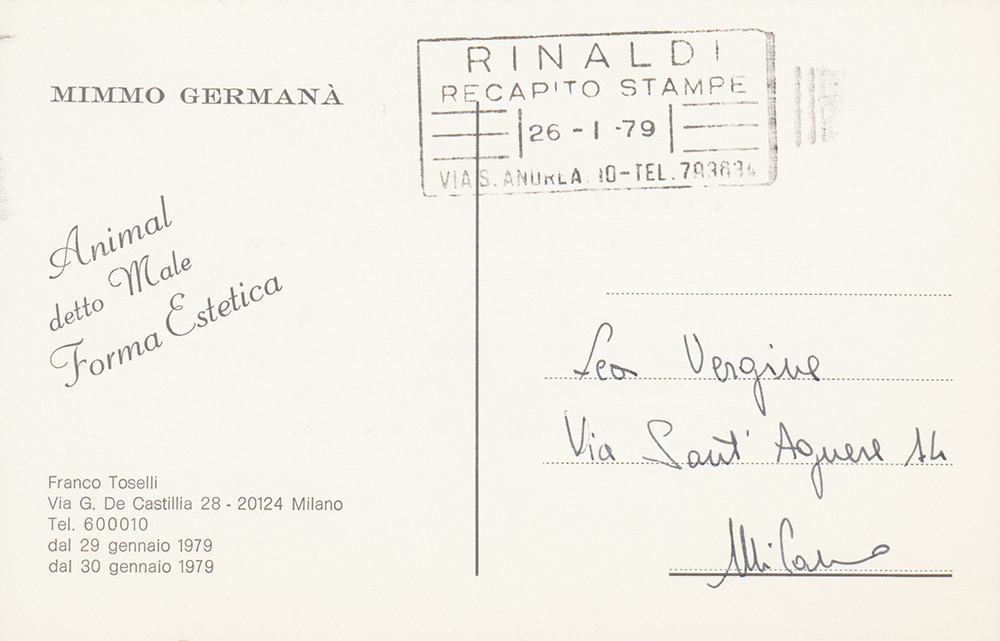 MIMMO GERMANÀ
RINALDI
RECAPITO STAMPE
26 - I - 79
VIA S. ANDREA 10 - TEL.
Animal
detto Male
Forma Estetica
Lea Vergine
Via Sant' Agnese 14
Milano
Franco Toselli
Via G. De Castillia 28 - 20124 Milano
Tel. 600010
dal 29 gennaio 1979
dal 30 gennaio 1979